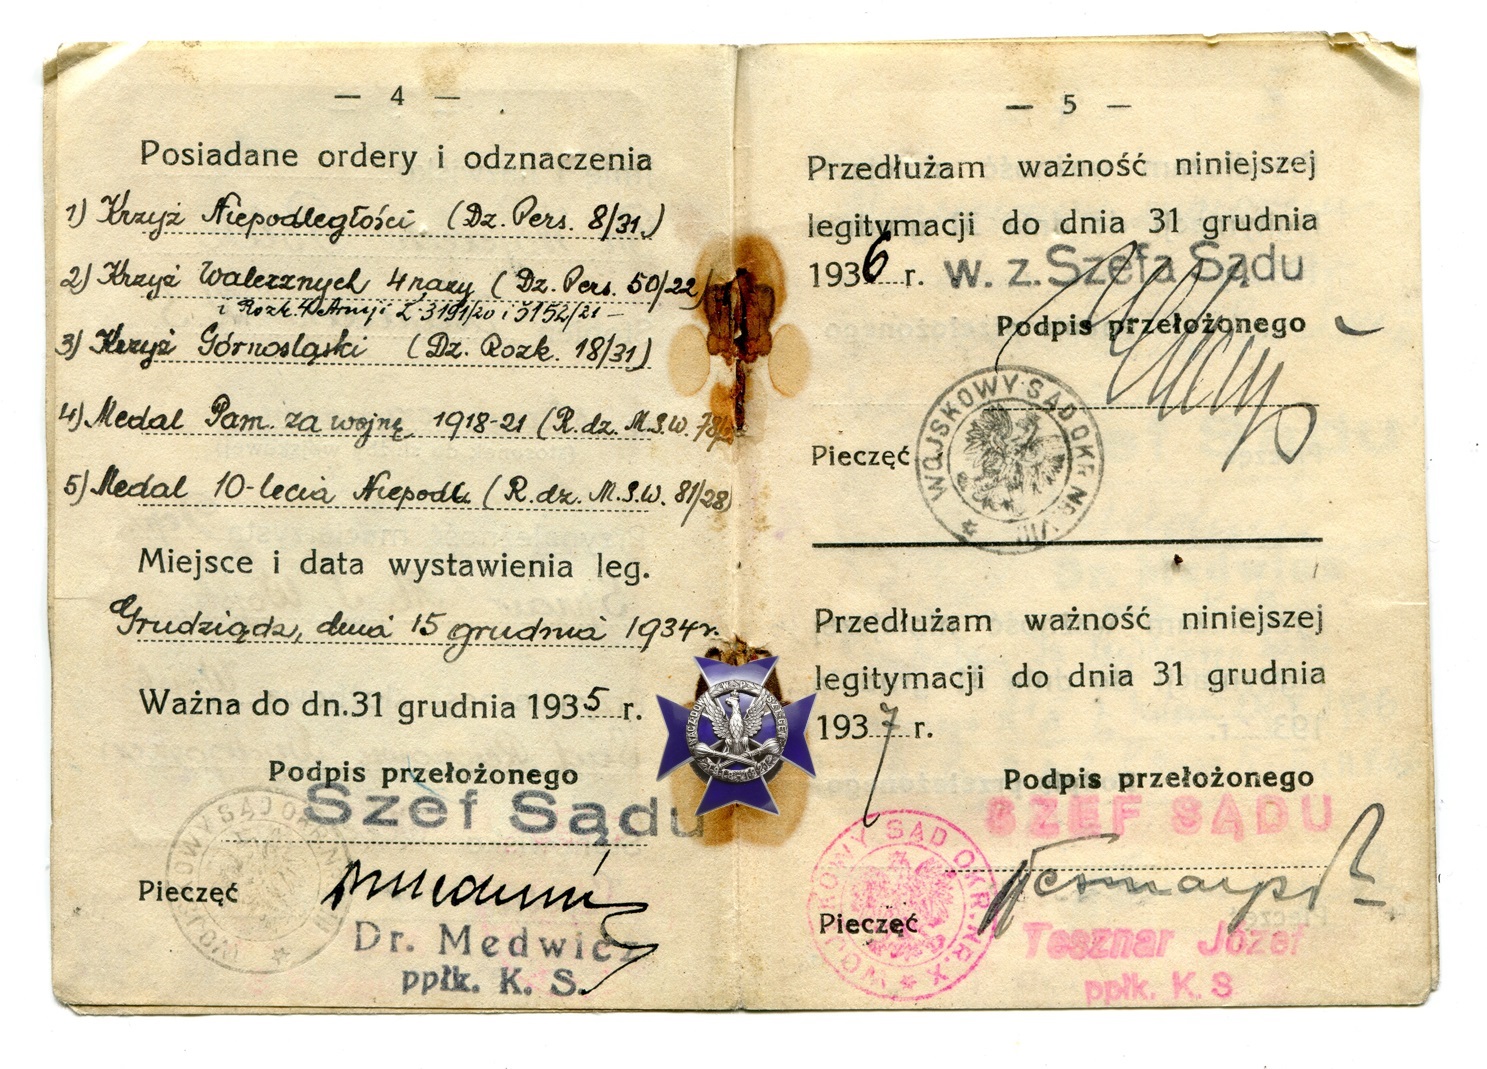 — 4 —
Posiadane ordery i odznaczenia
1) Krzyż Niepodległości (Dz. Pers. 8/31.)
2) Krzyż Walecznych 4 razy (Dz. Pers. 50/22)
i Rozk. 4 Armji L. 3191/20 i 3152/21 –
3) Krzyż Górnośląski (Dz. Rozk. 18/31)
4) Medal Pam. za wojnę 1918-21 (R. dz. M.S.W.
5) Medal 10-lecia Niepodl. (R. dz. M.S.W. 81/28)
Miejsce i data wystawienia leg.
Grudziądz, dnia 15 grudnia 1934 r.
Ważna do dn. 31 grudnia 1935 r.
Podpis przełożonego
Szef Sądu
Pieczęć
Dr. Medwicz
ppłk. K. S.
— 5 —
Przedłużam ważność niniejszej
legitymacji do dnia 31 grudnia
1936 r. w. z. Szefa Sądu
Podpis przełożonego
Pieczęć
WOJSKOWY SĄD OKR. NR. VIII
Przedłużam ważność niniejszej
legitymacji do dnia 31 grudnia
1937 r.
Podpis przełożonego
SZEF SĄDU
Pieczęć
WOJSKOWY SĄD OKR. NR. X
Tesznar Józef
ppłk. K. S